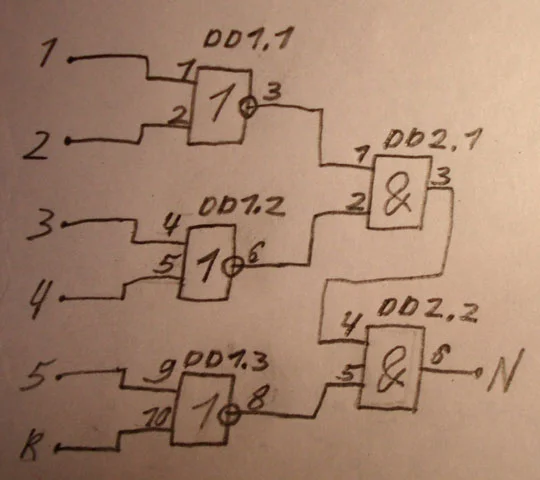 DD1.1
1
1
1
3
2
2
DD2.1
1
&
3
2
DD1.2
3
4
1
6
5
4
DD2.2
4
&
6
N
5
DD1.3
5
9
1
8
10
R